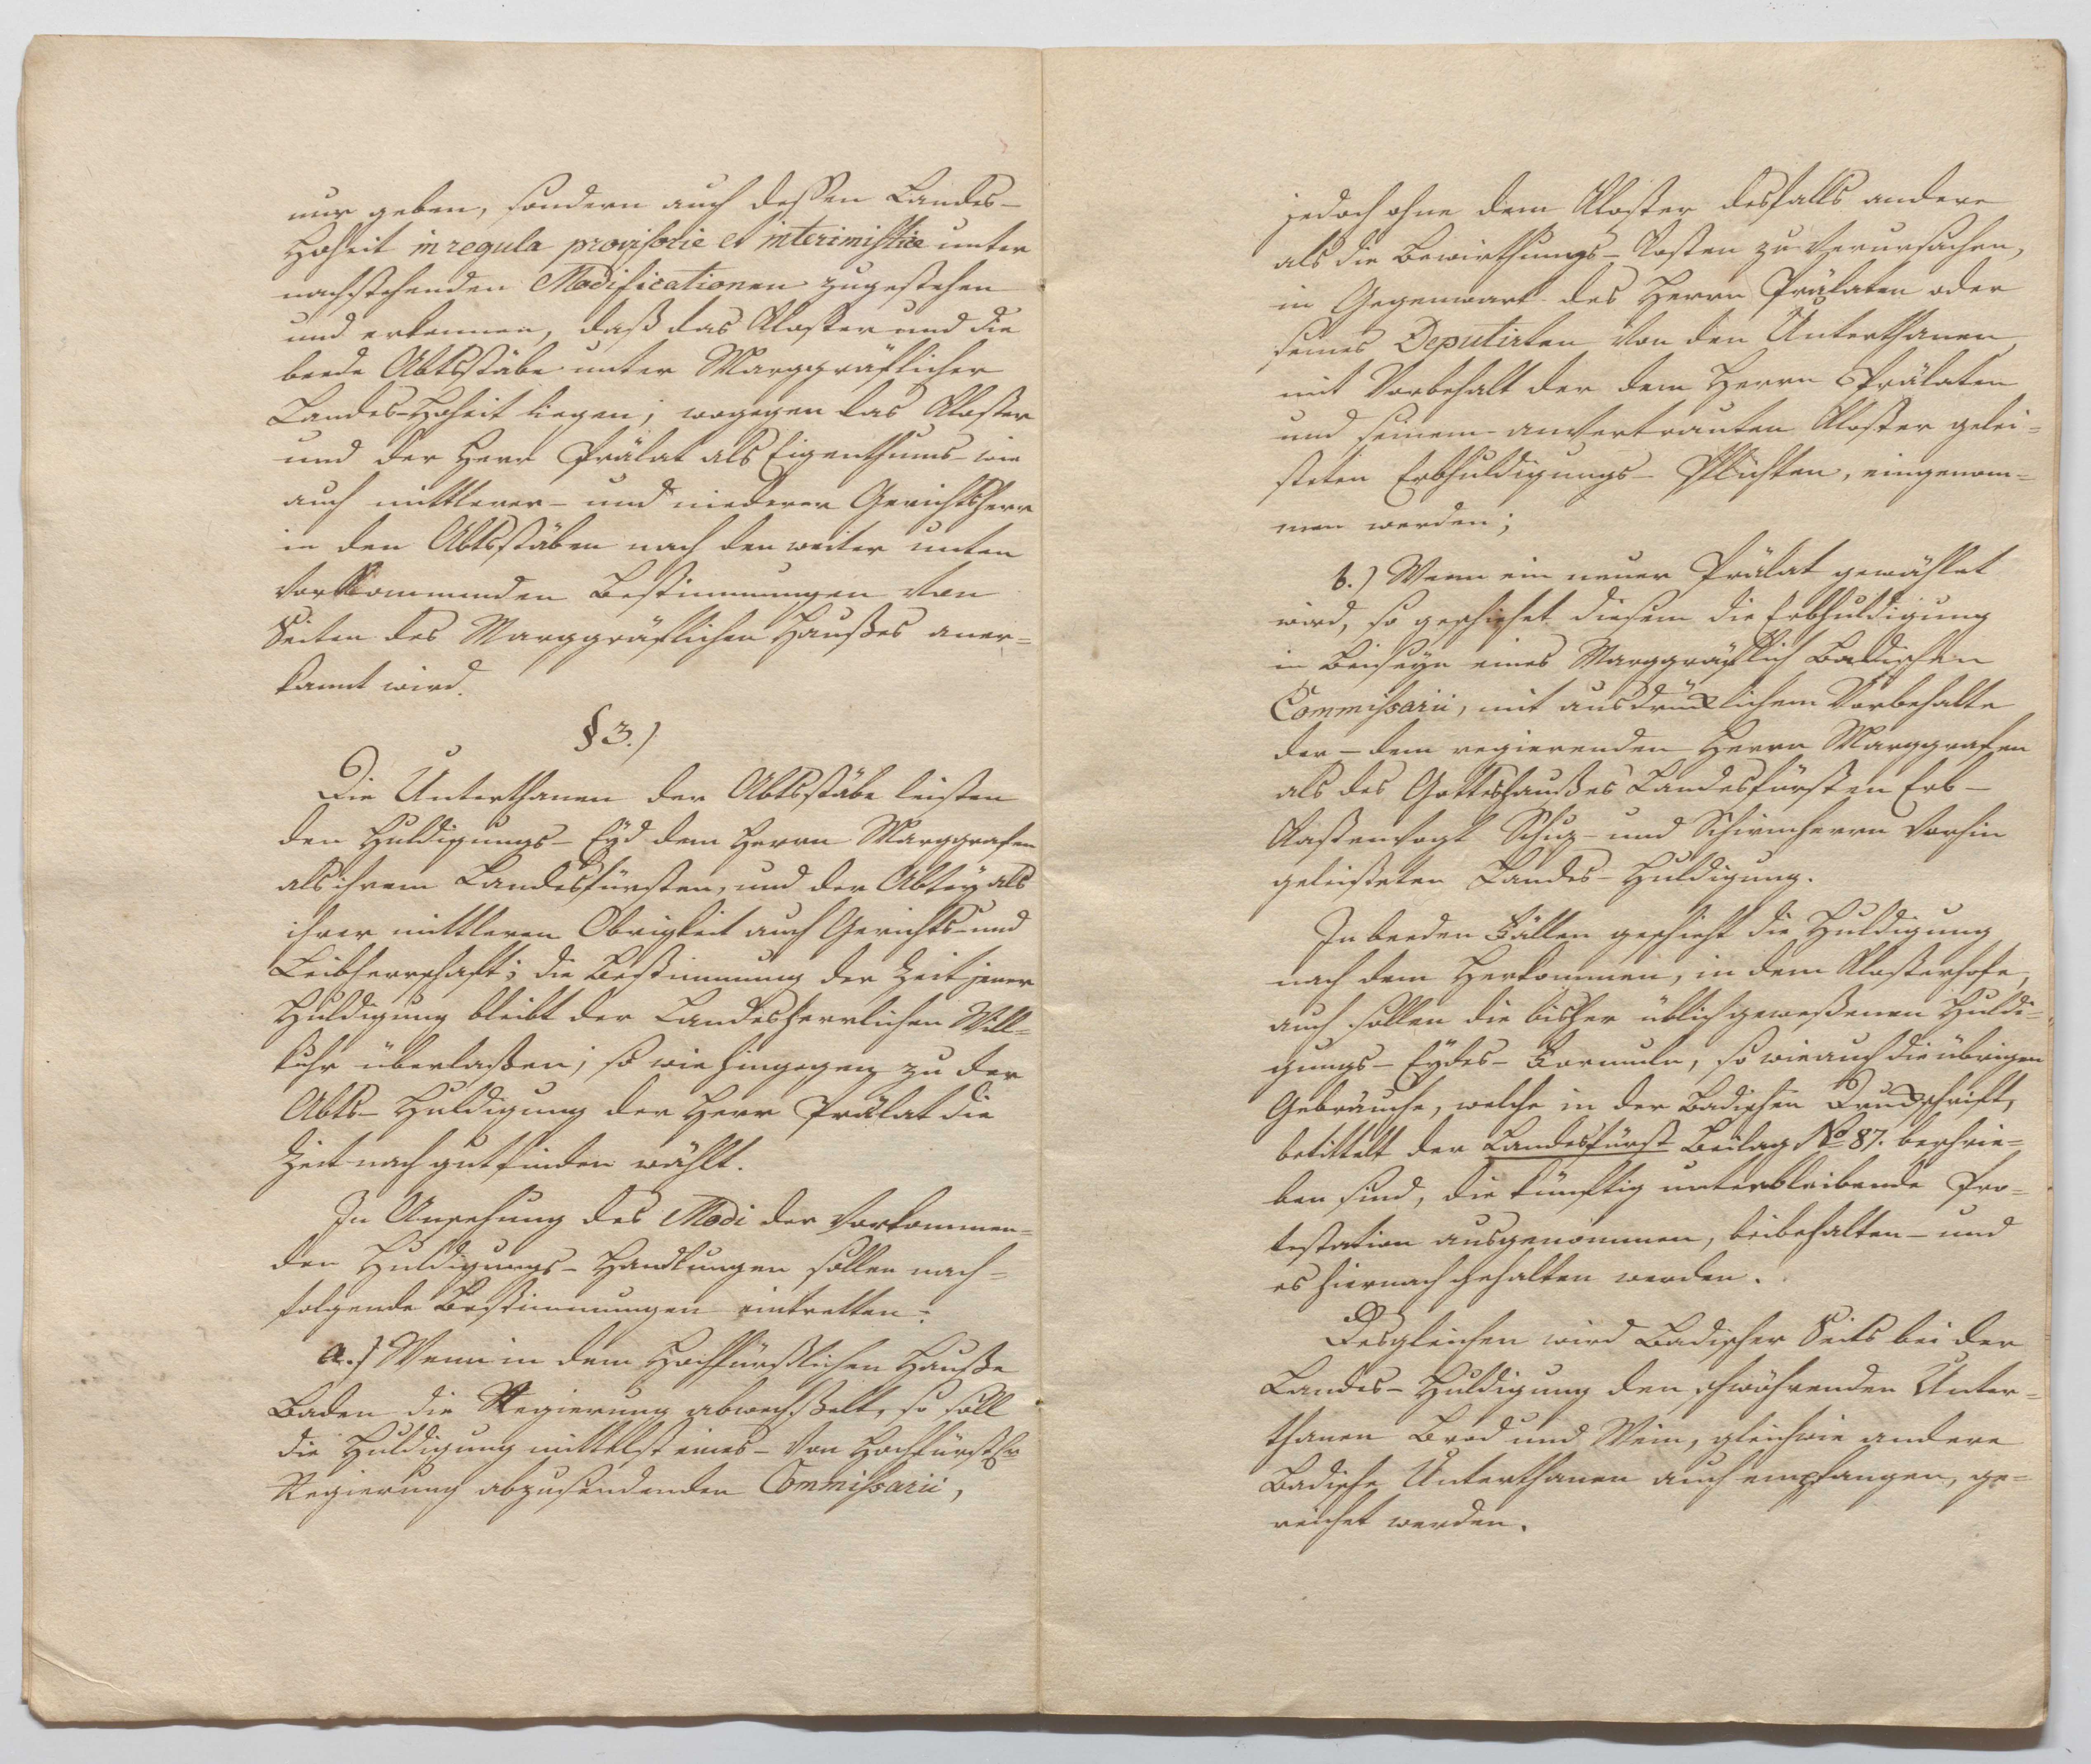 nur geben, sondern auch dessen Landes-
Hoheit in regula provisorie et interimistice unter
nachstehenden Modificationen zugestehen
und erkennen, daß das Kloster und die
beede Abtsstäbe unter Marggräflicher
Landes-Hoheit liegen; wogegen das Kloster
und der Herr Prälat als Eigenthums- wie
auch mittlerer- und niederer Gerichtsherr
in den Abtsstäben nach den weiter unten
vorkommenden Bestimmungen von
Seiten des Marggräflichen Haußes aner=
kannt wird.
§ 3.)
Die Unterthanen der Abtsstäbe leisten
den Huldigungs- Eyd dem Herrn Marggrafen
als ihrem Landesfürsten, und der Abtey als
ihrer mittleren Obrigkeit auch Gerichts- und
Leibherrschaft; die Bestimmung der Zeit jener
Huldigung bleibt der Landesherrlichen Will=
kuhr überlaßen; so wie hingegen zu der
Abts- Huldigung der Herr Prälat die
Zeit nach gutfinden wählt.
In Ansehung des Modi der vorkommen=
den Huldigungs- Handlungen sollen nach=
folgende Bestimmungen eintretten:
a.) Wenn in dem Hochfürstlichen Hauße
Baden die Regierung abwechßelt, so soll
die Huldigung mittelst eines- von Hochfürstlr
Regierung abzusendenden Commissarii,
jedoch ohne dem Kloster desfalls andere
als die Bewirthungs- Kosten zu verursachen,
in Gegenwart des Herrn Prälaten oder
seines Deputirten von den Unterthanen
mit Vorbehalt der dem Herrn Prälaten
und seinem anvertrauten Kloster gelei=
steten Erbhuldigungs- Pflichten, eingenom=
men werden;
b.) Wenn ein neuer Prälat gewählet
wird, so geschiehet diesem die Erbhuldigung
in Beiseyn eines Marggräflich Badischen
Commissarii, mit ausdrücklichem Vorbehalte
der- dem regierenden Herrn Marggrafen
als des Gotteshaußes Landesfürsten Erb-
Kastenvogt Schuz- und Schirmherrn vorhin
geleisteten Landes- Huldigung.
In beeden Fällen geschieht die Huldigung
nach dem Herkommen, in dem Klosterhofe,
auch sollen die bisher üblich geweßenen Huldi=
gungs- Eydes- Formuln, so wie auch die übrigen
Gebräuche, welche in der Badischen Druckschrift,
betittelt der Landesfürst Beilag No 87. beschrie=
ben sind, die künftig unterbleibende Pro=
testation ausgenommen, beibehalten- und
es hiernach gehalten werden.
Desgleichen wird Badischer Seits bei der
Landes- Huldigung den schwöhrenden Unter=
thanen Brod und Wein, gleichwie andere
Badische Unterthanen auch empfangen, ge=
reichet werden.